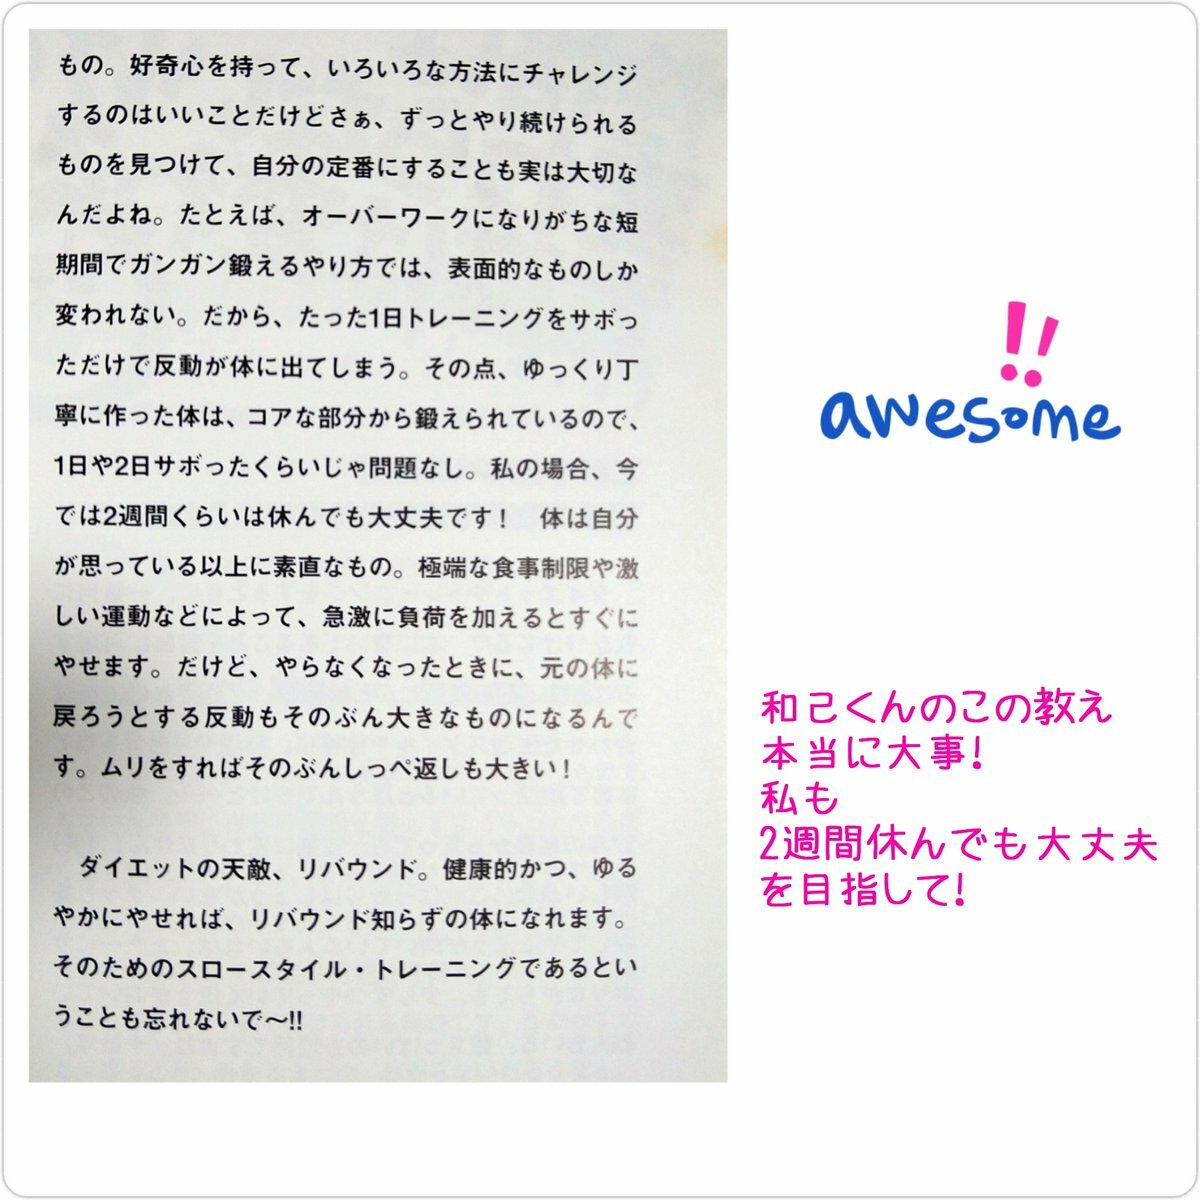 もの。好奇心を持って、いろいろな方法にチャレンジ
するのはいいことだけどさぁ、ずっとやり続けられる
ものを見つけて、自分の定番にすることも実は大切な
んだよね。たとえば、オーバーワークになりがちな短
期間でガンガン鍛えるやり方では、表面的なものしか
変われない。だから、たった1日トレーニングをサボっ
ただけで反動が体に出てしまう。その点、ゆっくり丁
寧に作った体は、コアな部分から鍛えられているので、
1日や2日サボったくらいじゃ問題なし。私の場合、今
では2週間くらいは休んでも大丈夫です！　体は自分
が思っている以上に素直なもの。極端な食事制限や激
しい運動などによって、急激に負荷を加えるとすぐに
やせます。だけど、やらなくなったときに、元の体に
戻ろうとする反動もそのぶん大きなものになるんで
す。ムリをすればそのぶんしっぺ返しも大きい！
ダイエットの天敵、リバウンド。健康的かつ、ゆる
やかにやせれば、リバウンド知らずの体になれます。
そのためのスロースタイル・トレーニングであるとい
うことも忘れないで〜!!
!!
awesome
和己くんのこの教え
本当に大事!
私も
2週間休んでも大丈夫
を目指して!